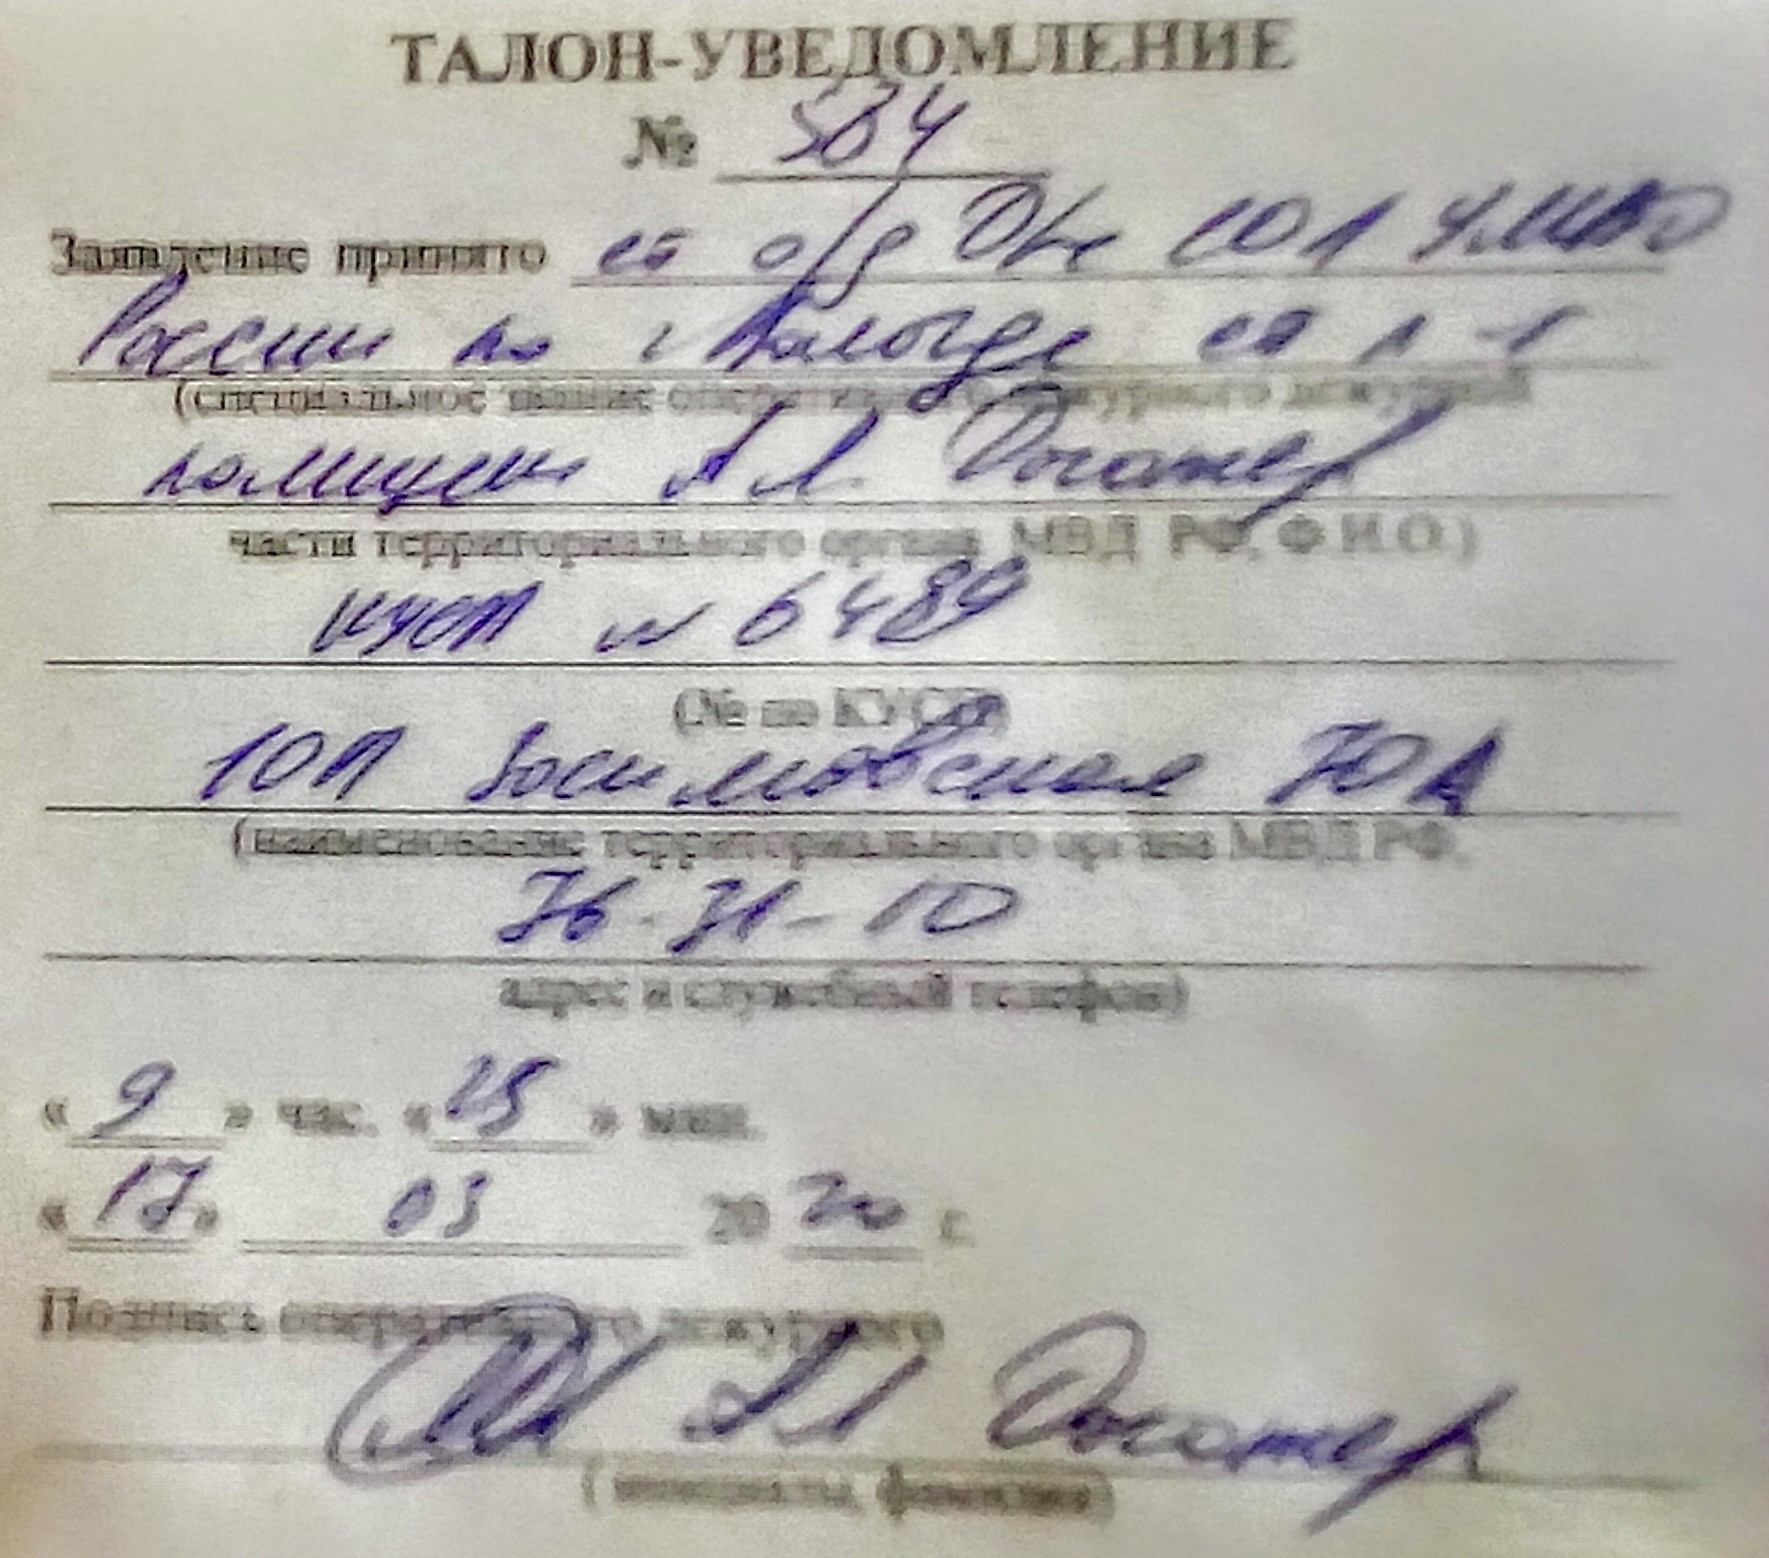 ТАЛОН-УВЕДОМЛЕНИЕ
№ 584
Заявление принято ст о/д УМВД
России по г Вологде ст л-т
(специальное звание оперативного дежурного дежурной
полиции А Л.
части территориального органа МВД РФ, Ф.И.О.)
КУСП № 6489
(№ по КУСП)
1ОП Зосимовская 70 А
(наименование территориального органа МВД РФ,
76-71-10
адрес и служебный телефон)
« 9 » час. « 25 » мин.
« 17 » 03 20 20 г.
Подпись оперативного дежурного
А Л
( инициалы, фамилия)